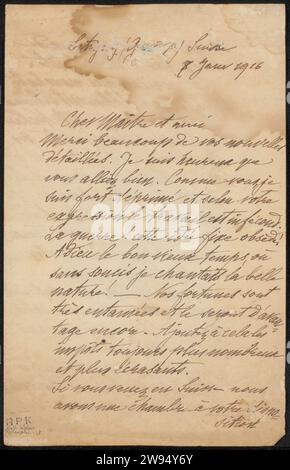 Suisse
7 Janv 1916
Cher Maître et ami
Merci beaucoup de vos nouvelles
détaillées. Je suis heureux que
vous alliez bien. Comme vous je
suis fort déprimé et selon votre
expression travail est infécond.
La guerre est idée fixe obséd!
Adieu le bon vieux temps, ou
sans soucis je chantais la belle
nature! — Nos fortunes sont
très entamées et le seront davan-
tage encore. Ajoutez à cela les
impôts toujours plus nombreux
et plus écrasants.
Si vous venez en Suisse nous
avons une chambre à votre
RPK
alamy
Image ID: 2W94Y6Y
www.alamy.com